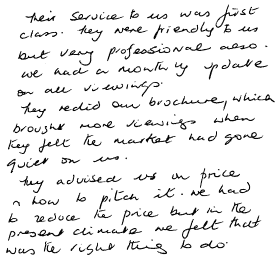 Their service to us was first
class. They were friendly to us
but very professional also.
We had a monthly update
on all viewings.
They redid our brochure, which
brought more viewings when
they felt the market had gone
quiet on us.
They advised us on price
n how to pitch it. We had
to reduce the price but in the
present climate we felt that
was the right thing to do.